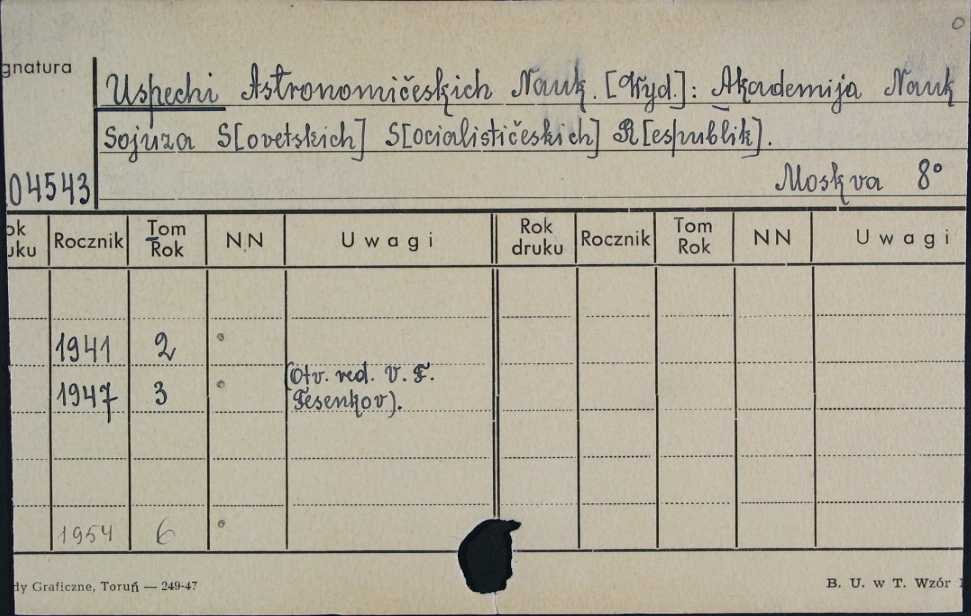 gnatura
Uspechi Astronomičeskich Nauk. [Wyd.]: Akademija Nauk
Sojuza S[ovetskich] S[ocialističeskich] R[espublik].
04543
Moskva 8°
ok
uku
Rocznik
Tom
Rok
NN
Uwagi
Rok
druku
Rocznik
Tom
Rok
NN
Uwagi
1941 2
1947 3 (Otv. red. V. F.
Fesenkov).
1954 6
dy Graficzne, Toruń — 249-47
B. U. w T. Wzór